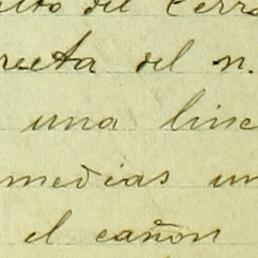 alto del Cerro
recta del n.
una line
medias un
el cañon